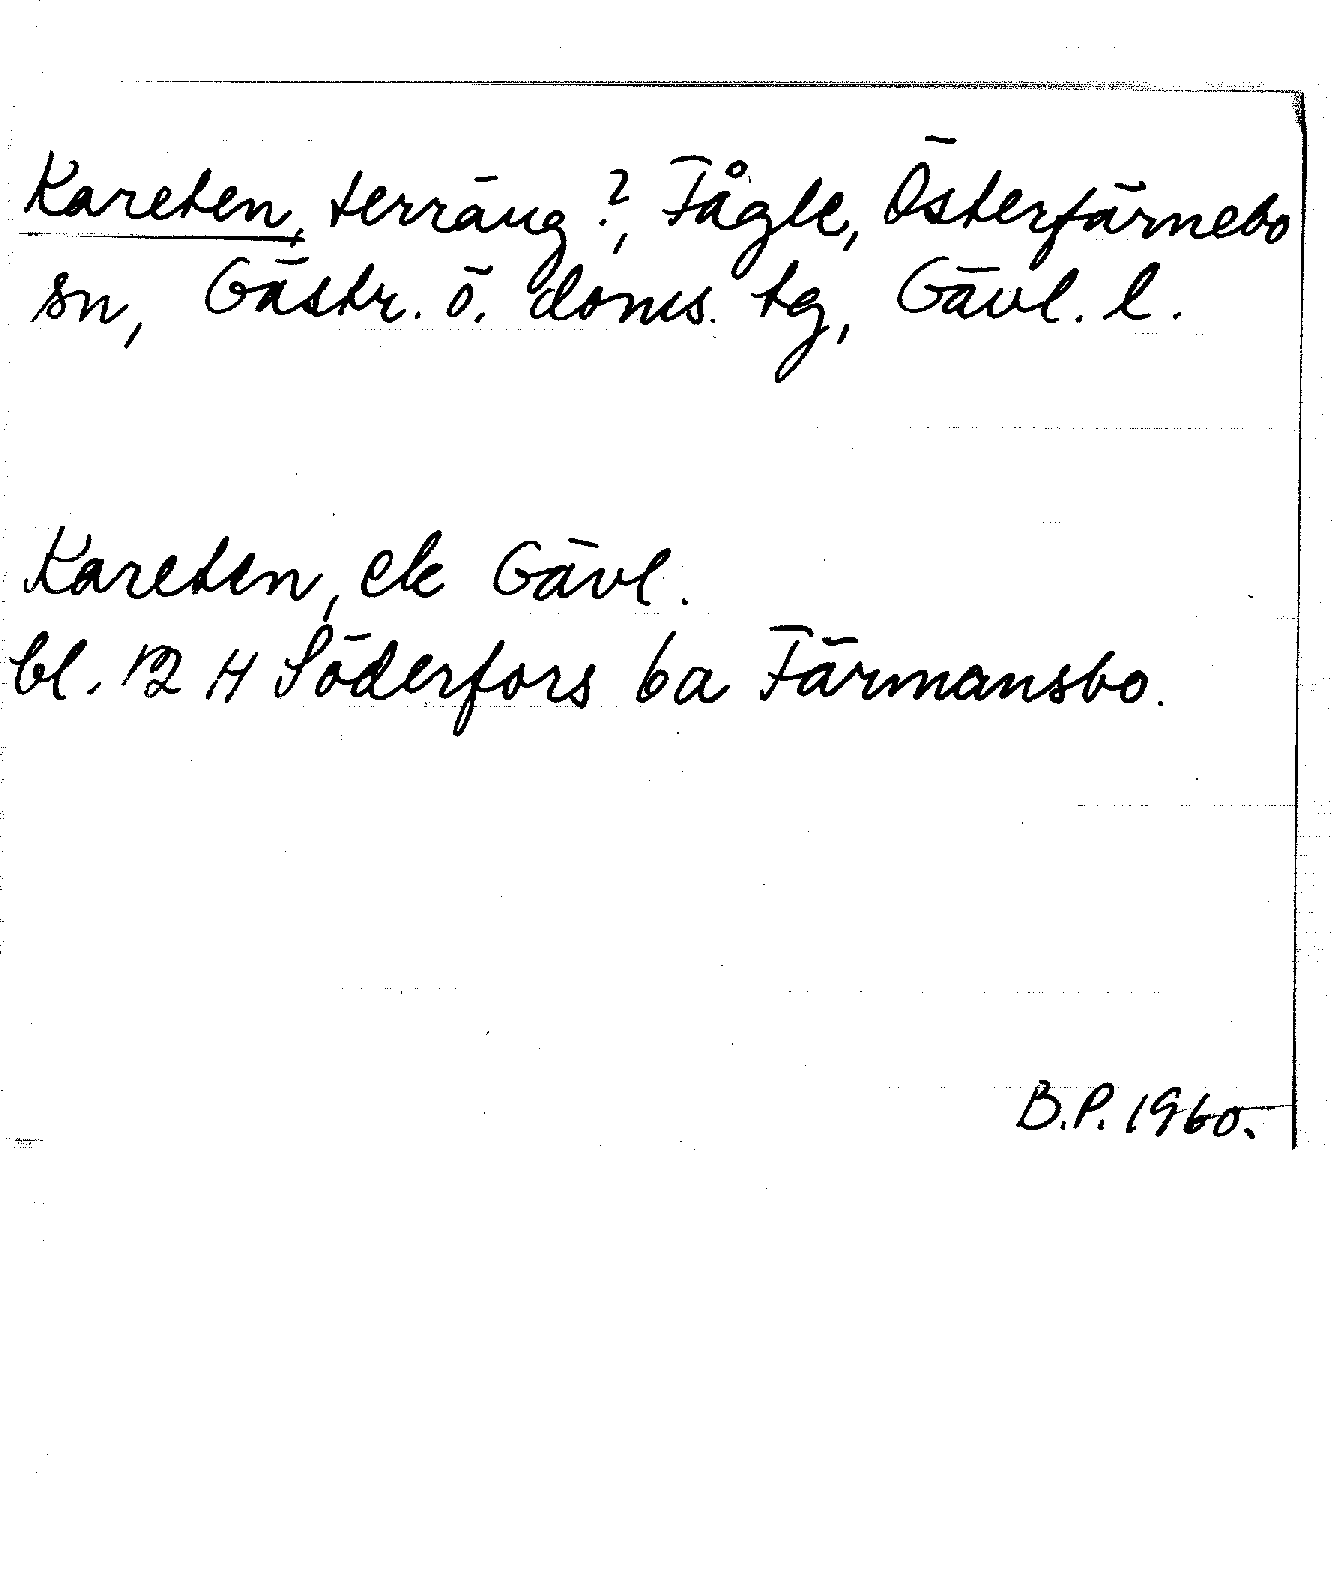 Kareten, terräng?, Fågle, Österfärnebo
sn, Gästr. ö. doms. tg, Gävl. l.
Kareten, ek Gävl.
bl. 12 H Söderfors 6a Färmansbo.
B.P. 1960.